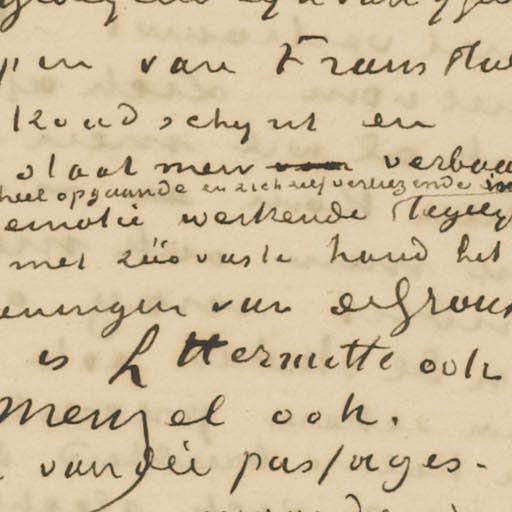 van Frans Hal
kwaad schynt en
slaat men verbaa
heel opgaande en zichzelf verliezende in
emotie werkende
met zúó vaste hand het
eeningen van de Groux
is L Hermitte ook
Menzel ook.
van die passages.